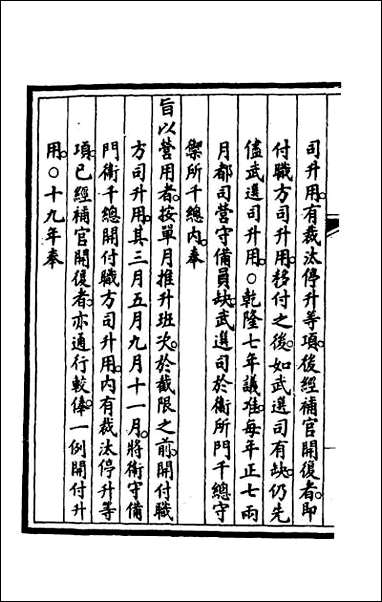 司升用。有裁汰停升等項。後經補官開復者。即
付職方司升用。移付之後。如武選司有缺。仍先
儘武選司升用。○乾隆七年議准。每年正七兩
月都司營守備員缺。武選司於衞所門千總守
禦所千總內。奉
旨以營用者。按單月推升班次。於截限之前。開付職
方司升用。其三月五月九月十一月。將衞守備
門衞千總開付職方司升用。內有裁汰停升等
項。已經補官開復者。亦通行較俸。一例開付升
用。○十九年奉